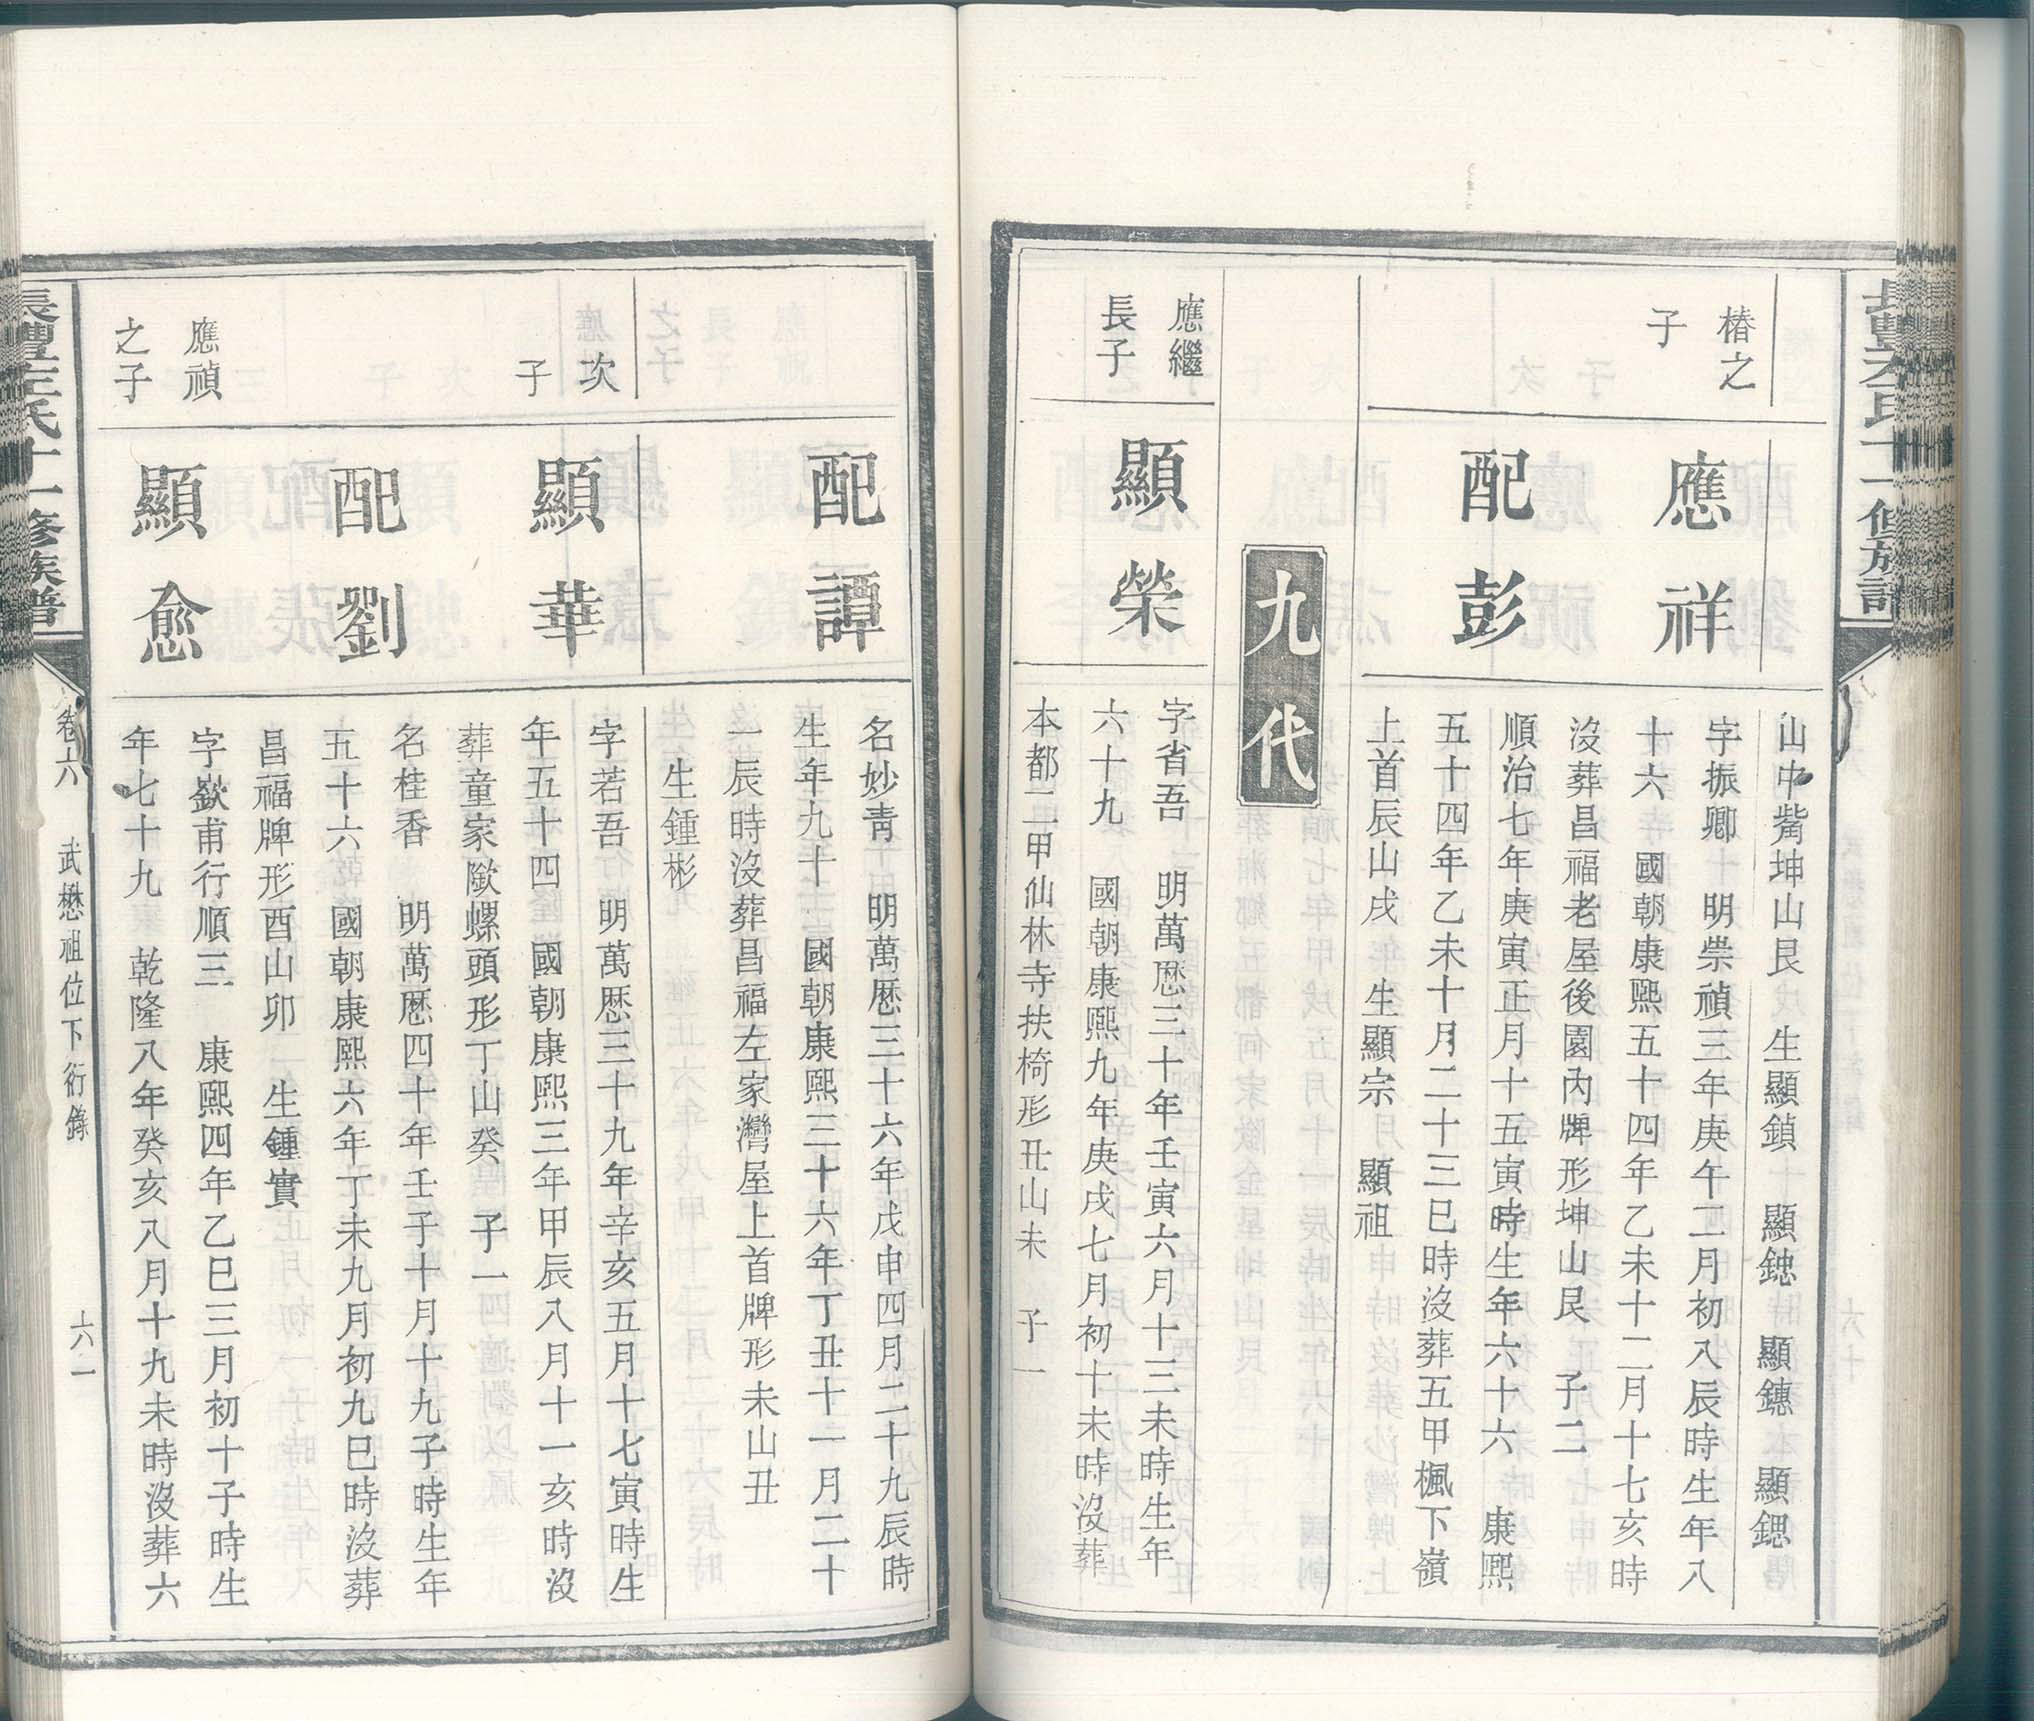 長豐左氏十一修族譜
山中觜坤山艮　生顯鎖　顯鍯　顯鏸　顯鍶
椿之
子
應祥
字振卿　明崇禎三年庚午二月初八辰時生年八
十六　國朝康熙五十四年乙未十二月十七亥時
沒葬昌福老屋後園內牌形坤山艮　子二
配彭
順治七年庚寅正月十五寅時生年六十六　康熙
五十四年乙未十月二十三巳時沒葬五甲楓下嶺
上首辰山戌　生顯宗　顯祖
九代
應繼
長子
顯榮
字省吾　明萬厯三十年壬寅六月十三未時生年
六十九　國朝康熙九年庚戌七月初十未時沒葬
本都二甲仙林寺扶椅形丑山未　子一
配譚
名妙青　明萬厯三十六年戊申四月二十九辰時
生年九十　國朝康熙三十六年丁丑十一月二十
一辰時沒葬昌福左家灣屋上首牌形未山丑
生鍾彬
次
子
顯華
字若吾　明萬厯三十九年辛亥五月十七寅時生
年五十四　國朝康熙三年甲辰八月十一亥時沒
葬童家歘螺頭形丁山癸　子一
配劉
名桂香　明萬厯四十年壬子十月十九子時生年
五十六　國朝康熙六年丁未九月初九巳時沒葬
昌福牌形酉山卯　生鍾實
應禎
之子
顯愈
字嶽甫行順三　康熙四年乙巳三月初十子時生
年七十九　乾隆八年癸亥八月十九未時沒葬六
長豐左氏十一修族譜
卷六　武懋祖位下衍錄　六一